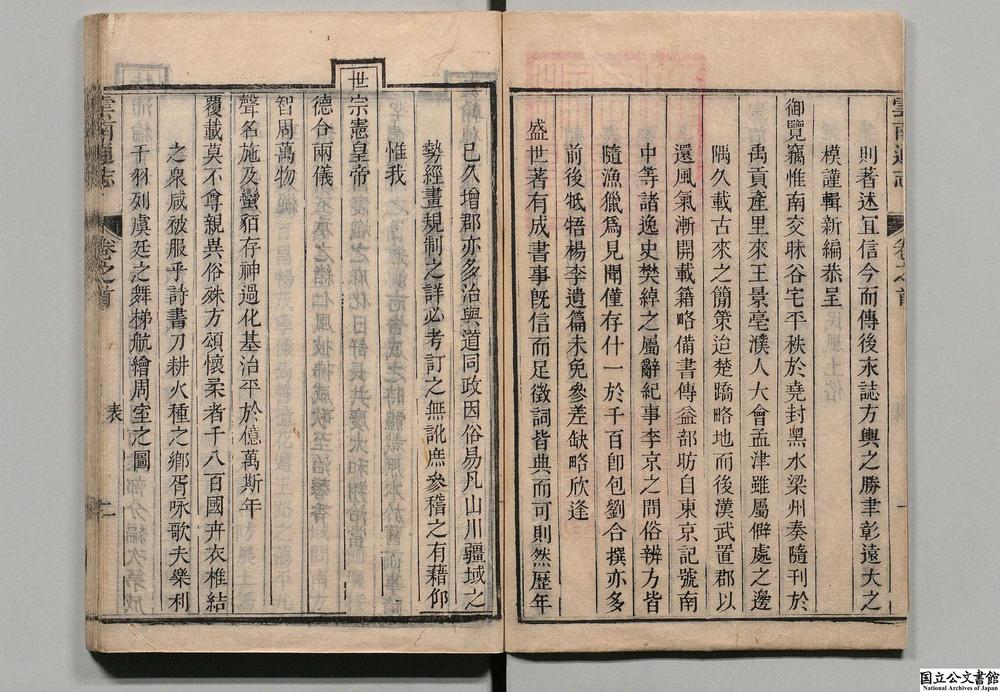 則著述宜信今而傳後求誌方輿之勝聿彰遠大之
模謹輯新編恭呈
御覽竊惟南交昧谷宅平秩於堯封黑水梁州奏隨刊於
禹貢產里來王景亳濮人大會孟津雖屬僻處之邊
隅久載古來之簡策迨楚蹻略地而後漢武置郡以
還風氣漸開載籍略備書傳益部昉自東京記號南
中等諸逸史樊綽之屬辭紀事李京之問俗辨方皆
隨漁獵爲見聞僅存什一於千百卽包劉合撰亦多
前後牴牾楊李遺篇未免參差缺略欣逢
盛世著有成書事旣信而足徵詞皆典而可則然歷年
雲南通志
卷之首
一
已久增郡亦多治與道同政因俗易凡山川疆域之
勢經畫規制之詳必考訂之無訛庶參稽之有藉仰
惟我
世宗憲皇帝
德合兩儀
智周萬物
聲名施及蠻貊存神過化基治平於億萬斯年
覆載莫不尊親異俗殊方頌懷柔者千八百國卉衣椎結
之衆咸被服乎詩書刀耕火種之鄉胥咏歌夫樂利
舞干羽列虞廷之舞梯航繪周室之圖
雲南通志
卷之首
表
二
国立公文書館
National Archives of Japan